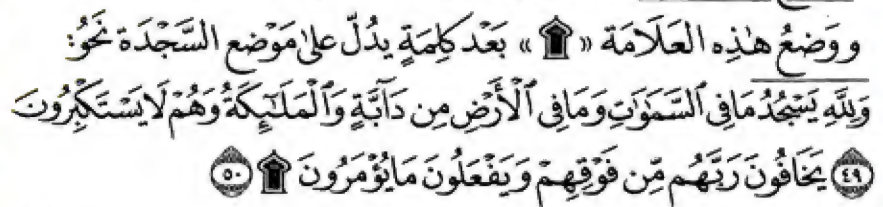 ووَضعُ هٰذِهِ العَلَامَة «۩» بَعْد كَلِمَةٍ يدُلّ علىٰ مَوْضِع السَّجْدَة نَحْوُ:
وَلِلَّهِ يَسْجُدُ مَا فِي ٱلسَّمَٰوَٰتِ وَمَا فِي ٱلْأَرْضِ مِن دَآبَّةٍ وَٱلْمَلَٰٓئِكَةُ وَهُمْ لَا يَسْتَكْبِرُونَ
﴿٤٩﴾ يَخَافُونَ رَبَّهُم مِّن فَوْقِهِمْ وَيَفْعَلُونَ مَا يُؤْمَرُونَ ۩ ﴿٥٠﴾